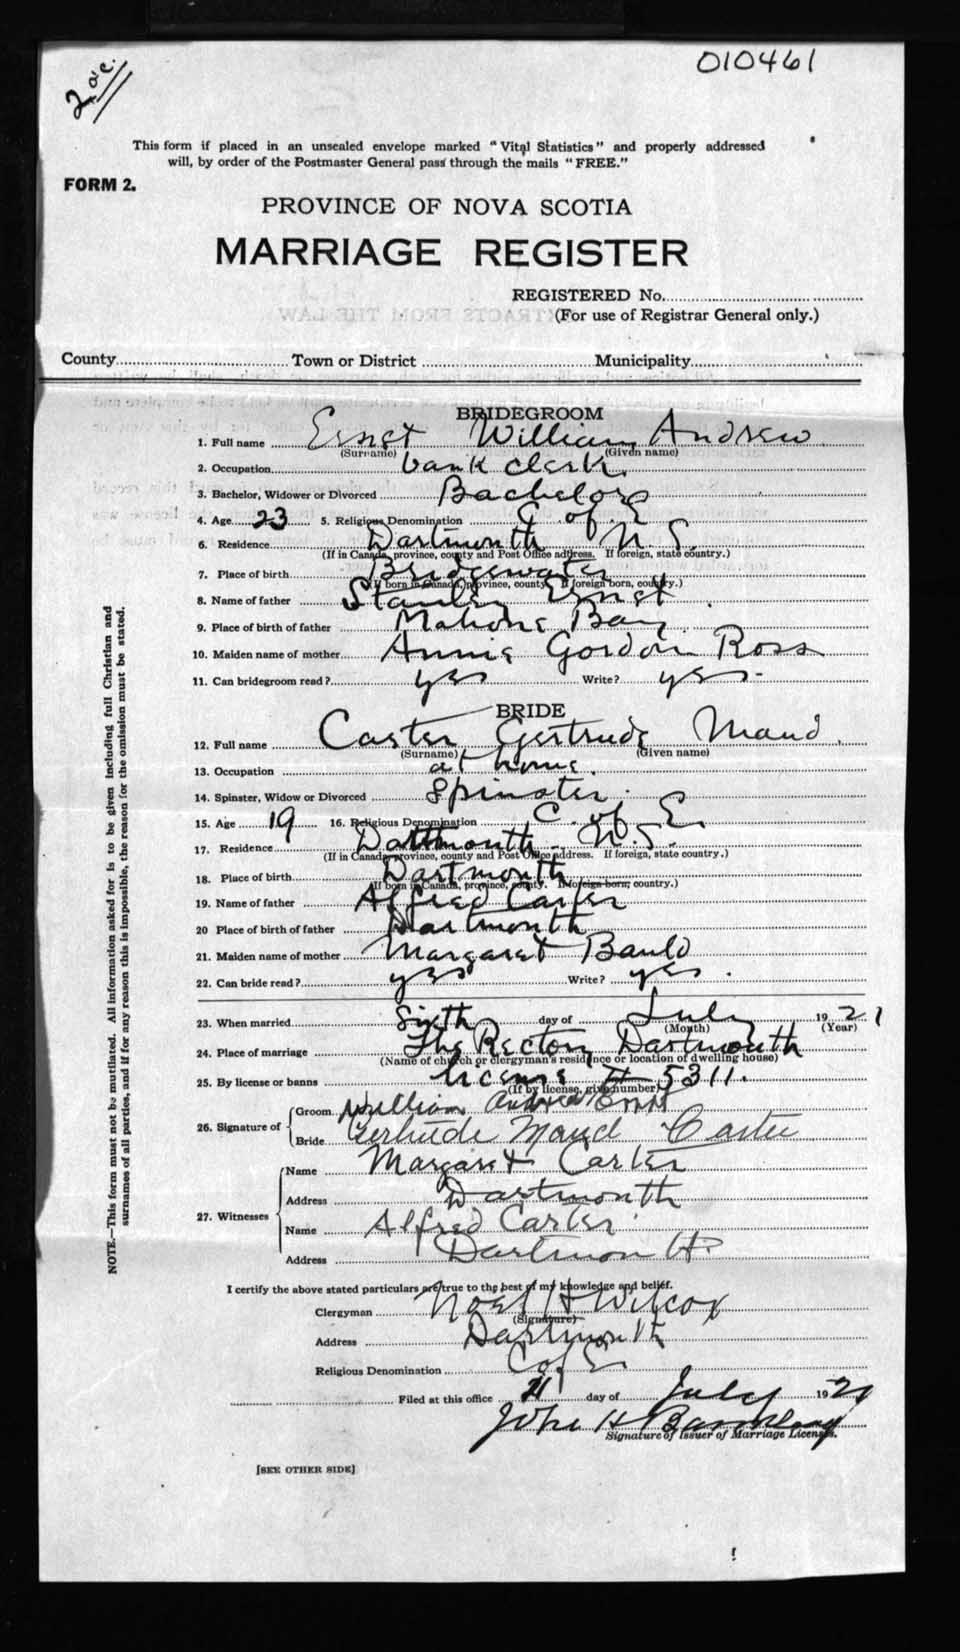 010461
This form if placed in an unsealed envelope marked "Vital Statistics" and properly addressed
will, by order of the Postmaster General pass through the mails "FREE."
FORM 2.
PROVINCE OF NOVA SCOTIA
MARRIAGE REGISTER
REGISTERED No.
(For use of Registrar General only.)
County Town or District Municipality
BRIDEGROOM
1. Full name Ernst William Andrew
(Surname) (Given name)
2. Occupation bank clerk.
3. Bachelor, Widower or Divorced Bachelor
4. Age 23 5. Religious Denomination C. of E
6. Residence Dartmouth N.S.
(If in Canada, province, county and Post Office address. If foreign, state country.)
7. Place of birth Bridgewater
(If born in Canada, province, county. If foreign born, country.)
8. Name of father Stanley Ernst
9. Place of birth of father Mahone Bay
10. Maiden name of mother Annie Gordon Ross
11. Can bridegroom read? yes Write? yes.
BRIDE
12. Full name Carter Gertrude Maud.
(Surname) (Given name)
13. Occupation at home.
14. Spinster, Widow or Divorced Spinster.
15. Age 19 16. Religious Denomination C. of E.
17. Residence Dartmouth N.S.
(If in Canada, province, county and Post Office address. If foreign, state country.)
18. Place of birth Dartmouth
(If born in Canada, province, county. If foreign born, country.)
19. Name of father Alfred Carter
20 Place of birth of father Dartmouth
21. Maiden name of mother Margaret Bauld
22. Can bride read? yes Write? yes.
23. When married Sixth day of July 1921
(Month) (Year)
24. Place of marriage The Rectory Dartmouth
(Name of church or clergyman's residence or location of dwelling house)
25. By license or banns license # 5311.
(If by license, give number)
26. Signature of
Groom William Andrew Ernst
Bride Gertrude Maud Carter
27. Witnesses
Name Margaret Carter
Address Dartmouth
Name Alfred Carter
Address Dartmouth
I certify the above stated particulars are true to the best of my knowledge and belief.
Clergyman Noel H Wilcox
(Signature)
Address Dartmouth
Religious Denomination C of E
Filed at this office 21 day of July 1921
John H
Signature of Issuer of Marriage Licenses.
[SEE OTHER SIDE]
NOTE.—This form must not be mutilated. All information asked for is to be given including full Christian and
surnames of all parties, and if for any reason this is impossible, the reason for the omission must be stated.